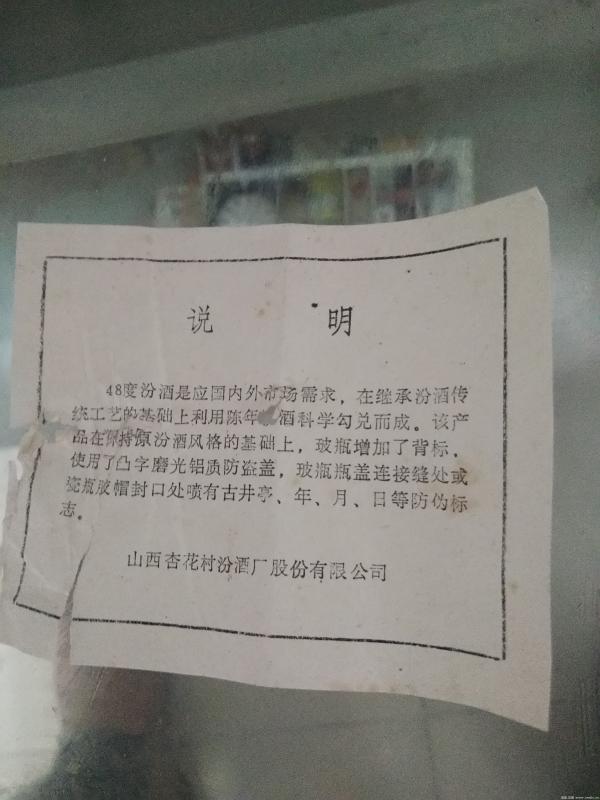 说 明
48度汾酒是应国内外市场需求，在继承汾酒传
统工艺的基础上利用陈年 酒科学勾兑而成。该产
品在保持原汾酒风格的基础上，玻瓶增加了背标，
使用了凸字磨光铝质防盗盖，玻瓶瓶盖连接缝处或
瓷瓶胶帽封口处喷有古井亭、年、月、日等防伪标
志。
山西杏花村汾酒厂股份有限公司